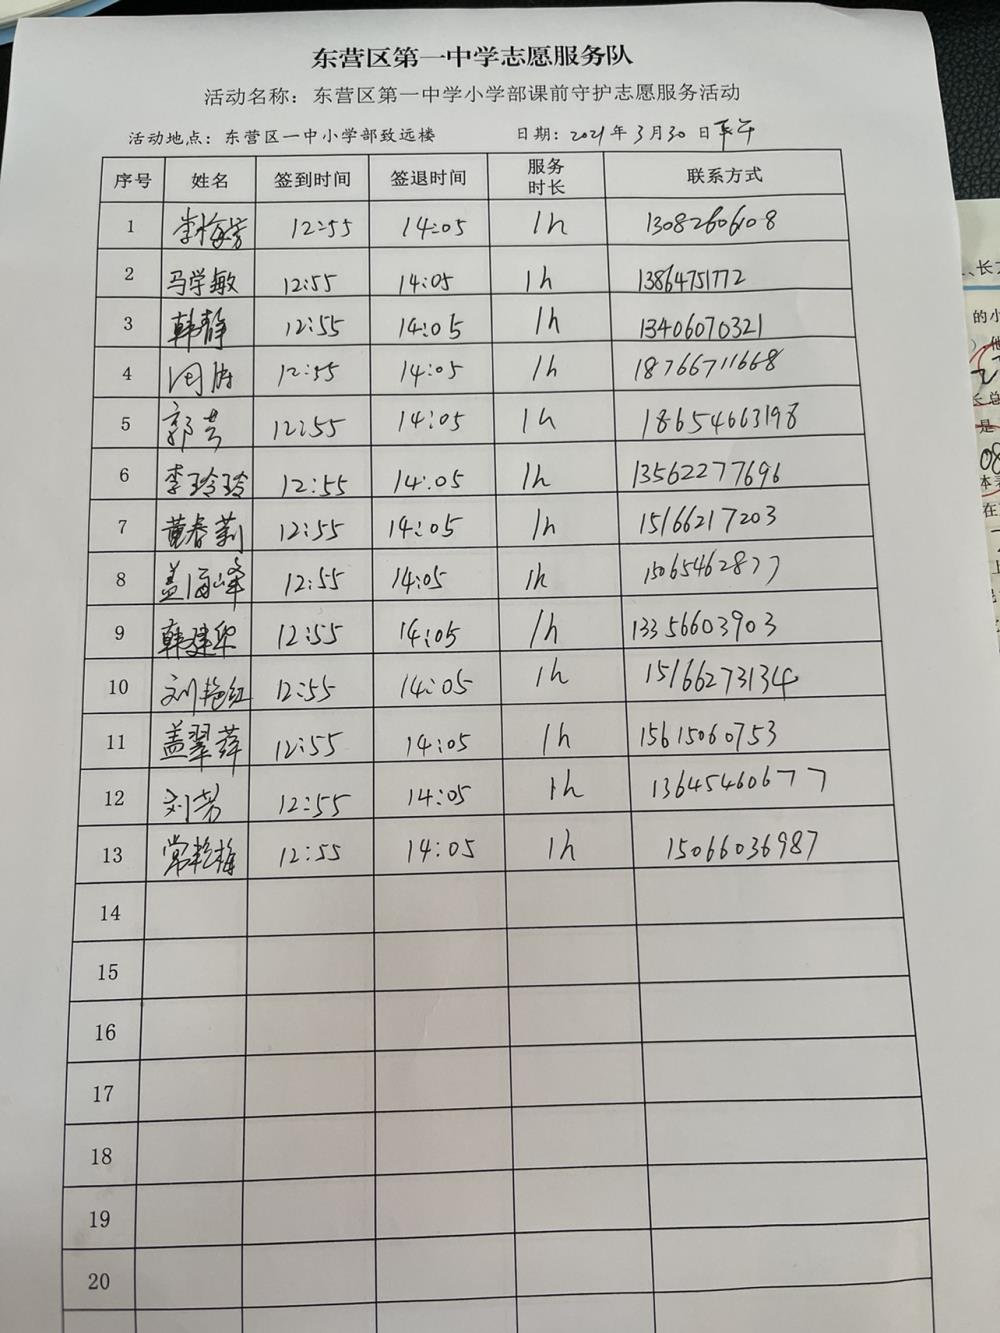 东营区第一中学志愿服务队
活动名称：东营区第一中学小学部课前守护志愿服务活动
活动地点：东营区一中小学部致远楼 日期：2021年3月30日下午
序号 姓名 签到时间 签退时间 服务时长 联系方式
1 李梅芳 12:55 14:05 1h 13082606108
2 马学敏 12:55 14:05 1h 13864751772
3 韩静 12:55 14:05 1h 13406070321
4 12:55 14:05 1h 18766711668
5 郭芸 12:55 14:05 1h 18654663198
6 李玲玲 12:55 14:05 1h 13562277696
7 黄春莉 12:55 14:05 1h 15166217203
8 盖海峰 12:55 14:05 1h 15065462877
9 韩建华 12:55 14:05 1h 13356603903
10 刘艳红 12:55 14:05 1h 15166273134
11 盖翠萍 12:55 14:05 1h 15615060753
12 刘芳 12:55 14:05 1h 13645460677
13 常艳梅 12:55 14:05 1h 15066036987
14
15
16
17
18
19
20